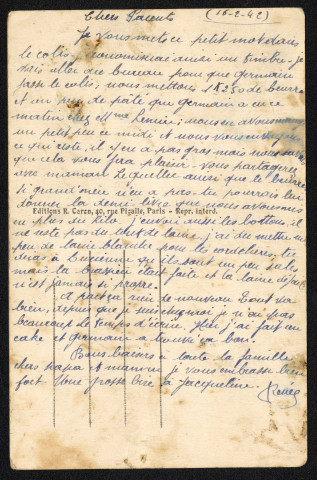 Chers Parents (16-2-42)
Je vous mets ce petit mot dans
le colis, j'économiserai ainsi un timbre - je
dois aller au bureau pour que Germain
fasse le colis; nous mettons 1K250 de beurre
et un peu de pâté que Germain a eu ce
matin chez Mme ; nous en avons mangé
un petit peu ce midi et nous vous
ce qui reste, il y en a pas gras mais nous
que cela vous fera plaisir. Vous partagerez
avec maman Le ainsi que le beurre
Si grand'mère n'en a pas tu pourrais lui
donner la demi livre que nous avons
Editions R. Caron, 40, rue Pigalle, Paris - Repr. interd.
en plus du kilo. J'envoie aussi les bottons, il
ne reste pas du tout de laine, j'ai dû mettre un
peu de laine blanche pour les cordelières, tu
diras à Lucienne qu'ils sont un peu sales
mais la brassière était faite et la laine
n'est jamais si propre.
A part ça rien de nouveau tout va
bien, depuis que je suis j'ai pas
beaucoup le temps d'écrire. Hier j'ai fait un
cake et Germain a trouvé ça bon.
Bons baisers à toute la famille
chers papa et maman je vous embrasse bien
fort. Une grosse bise à Jacqueline.
Renée